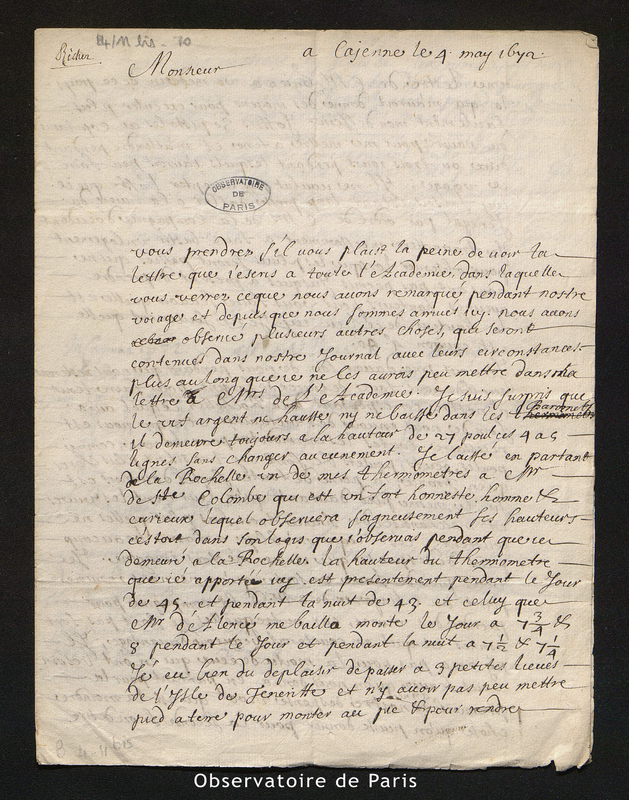 Richer
B4/11 bis - 10
a Cajenne le 4 may 1672.
Monsieur
OBSERVATOIRE
DE
PARIS
vous prendrez s'il vous plaist la peine de voir la
lettre que i'escris a toute l'Academie dans laquelle
vous verrez ceque nous auons remarqué pendant nostre
voiage et depuis que nous sommes arriués icy. nous auons
observé plusieurs autres choses, qui seront
contenues dans nostre Journal auec leurs circonstances
plus au long que ie ne les aurois peu mettre dans ma
lettre a Mrs de l'Academie. Je suis surpris que
le vif argent ne hausse ny ne baisse dans les thermometres Baromett
il demeure toujours a la hauteur de 27 pouces 4 a 5
lignes sans changer aucunement. Je laissé en partant
de la Rochelle un de mes thermometres a Mr
de Ste Colombe qui est un fort honneste homme &
curieux lequel observera soigneusement ses hauteurs
cestoit dans son logis que i'observas pendant que ie
demeuré a la Rochelle. la hauteur du thermometre
que i'é apporté icy est presentement pendant le Jour
de 45 et pendant la nuit de 43 et celuy que
Mr ne bailla monte le Jour a 7 3/4 &
8 pendant le Jour et pendant la nuit a 7 1/2 & 7 1/4
J'é eu bien du deplaisir de passer a 3 petites lieues
de l'Isle de Teneriffe et n'y auoir pas peu mettre
pied a terre pour monter au pic & pour rendre
Observatoire de Paris